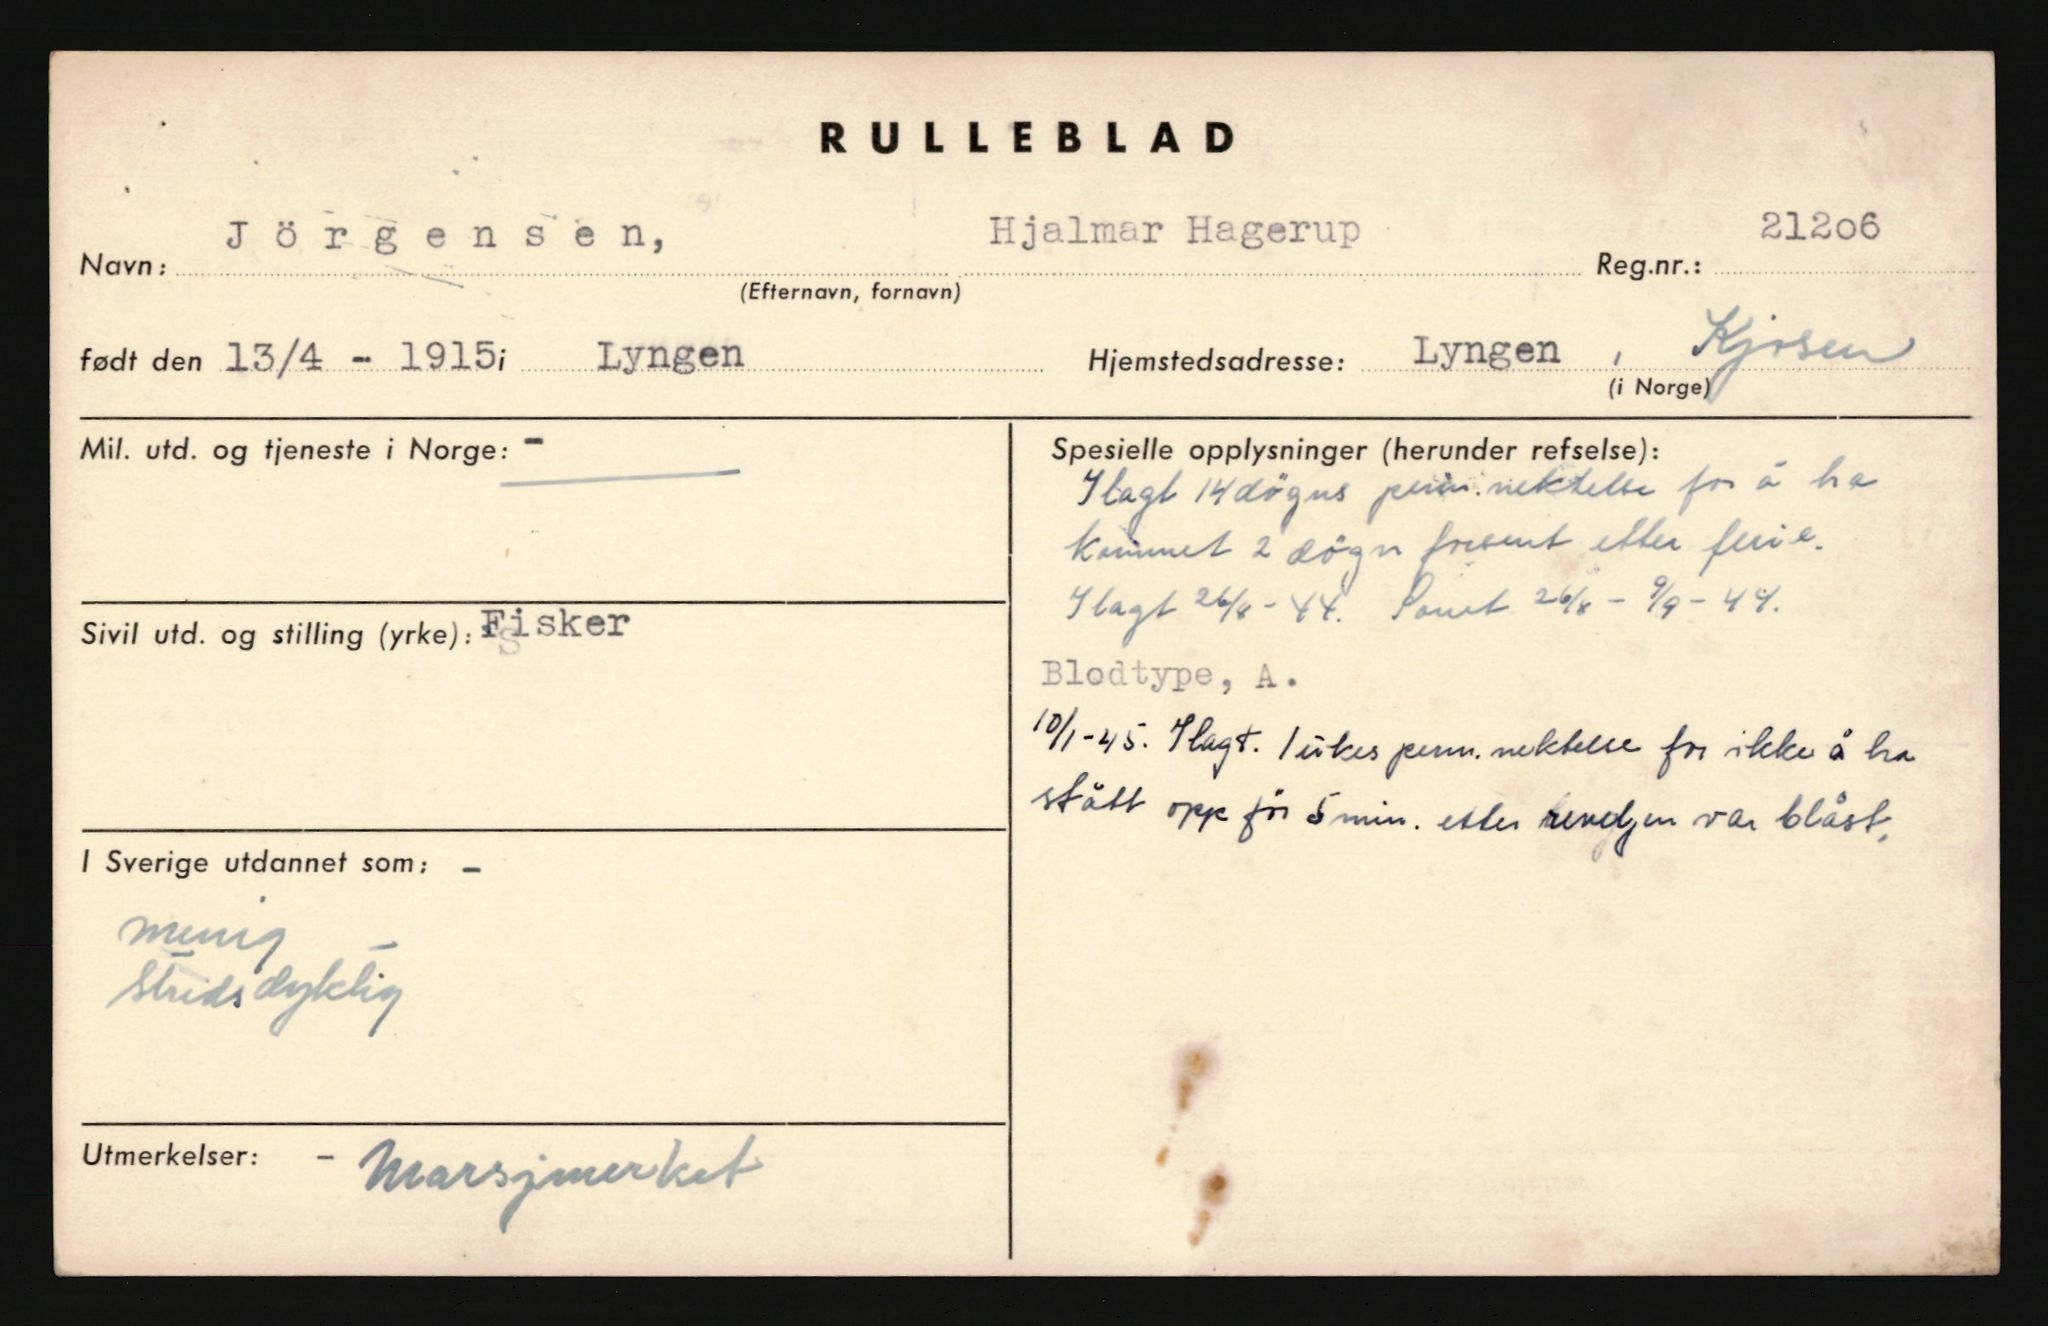 RULLEBLAD
Navn: Jörgensen, Hjalmar Hagerup Reg.nr.: 21206
(Efternavn, fornavn)
født den 13/4 - 1915 i Lyngen Hjemstedsadresse: Lyngen, Kjosen
(i Norge)
Mil. utd. og tjeneste i Norge: -
Sivil utd. og stilling (yrke): Fisker
I Sverige utdannet som: -
menig
stridsdyktig
Utmerkelser: - Marsjmerket
Spesielle opplysninger (herunder refselse):
Ilagt 14 døgns perm. nektelse for å ha
kommet 2 døgn forsent etter ferie.
Ilagt 26/8 - 44. Sonet 26/8 - 9/9 - 44.
Blodtype, A.
10/1-45. Ilagt. 1 ukes perm. nektelse for ikke å ha
stått opp før 5 min. etter reveljen var blåst.